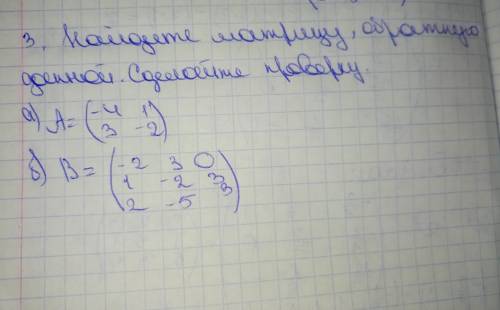 3. Найдите матрицу, обратную
данной. Сделайте проверку.
а) A = (-4 1
3 -2)
б) B = (-2 3 0
1 -2 3
2 -5 3)